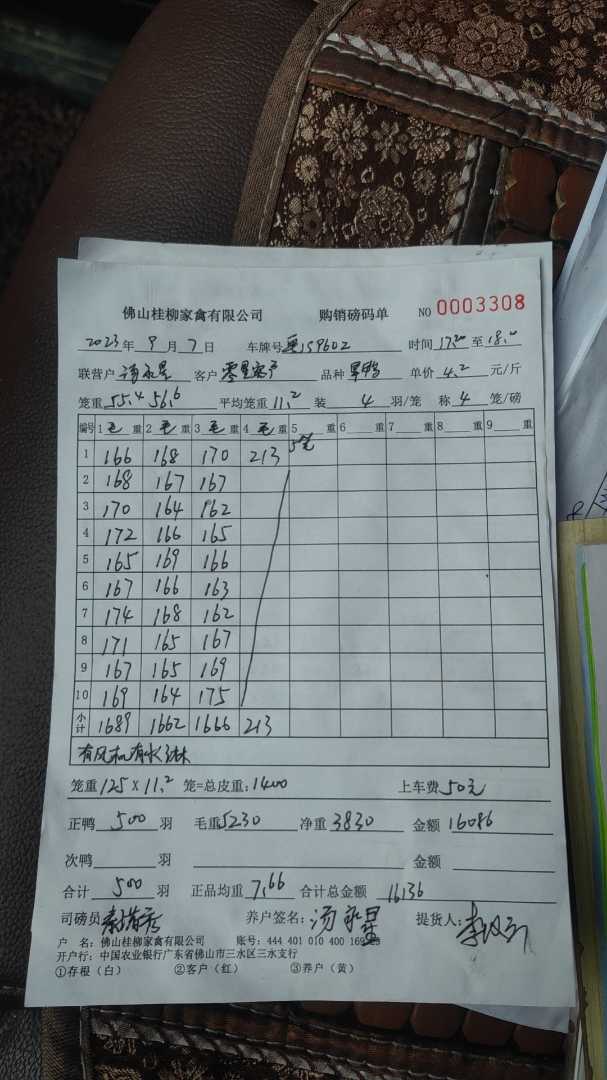 佛山桂柳家禽有限公司 购销磅码单 NO 0003308
2023年 9月 7日 车牌号 粤159602 时间 17:20 至 18:10
联营户 客户 零星客户 品种 旱鸭 单价 4.2 元/斤
笼重 55.4 56.6 平均笼重 11.2 装 4 羽/笼 称 4 笼/磅
编号 1 毛 重 2 毛 重 3 毛 重 4 毛 重 5 重 6 重 7 重 8 重 9 重
1 166 168 170 213 5笼
2 168 167 167
3 170 164 162
4 172 166 165
5 165 169 166
6 167 166 163
7 174 168 162
8 171 165 167
9 167 165 169
10 169 164 175
小计 1689 1662 1666 213
有风机有水淋
笼重 125 X 11.2 笼=总皮重: 1400 上车费 50元
正鸭 500 羽 毛重 5230 净重 3830 金额 16086
次鸭 羽 金额
合计 500 羽 正品均重 7.66 合计总金额 16136
司磅员 养户签名: 汤永星 提货人:
户 名: 佛山桂柳家禽有限公司 账号: 444 401 010 400 169
开户行: 中国农业银行广东省佛山市三水区三水支行
①存根（白） ②客户（红） ③养户（黄）